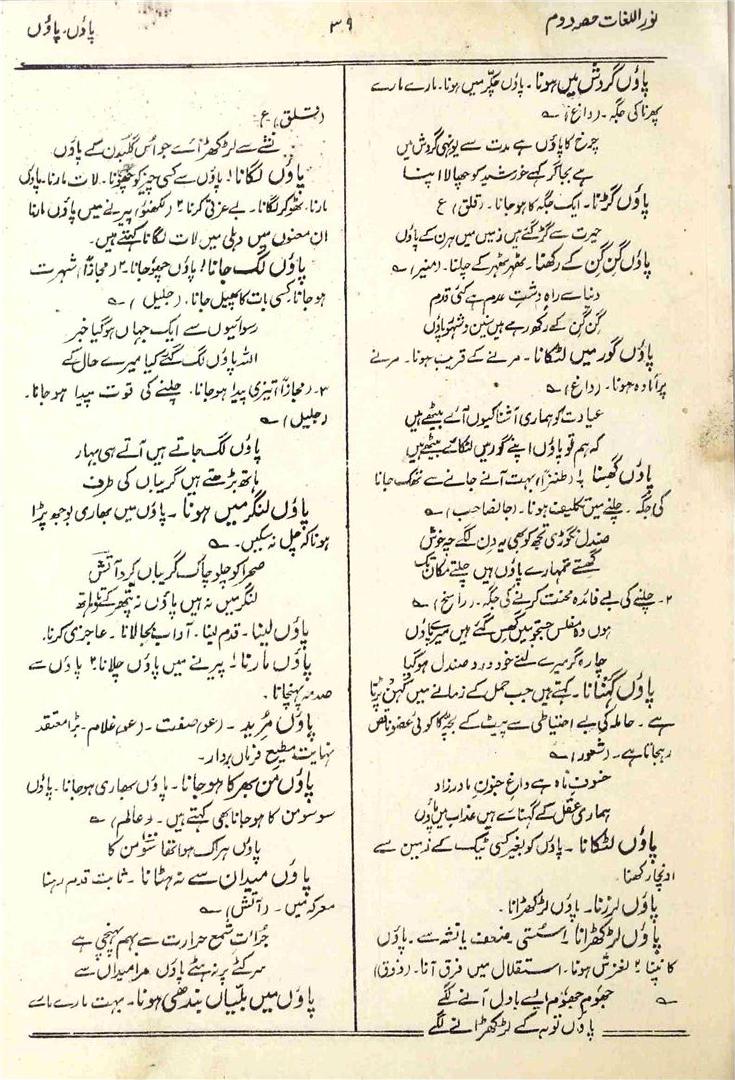 نور اللغات حصہ دوم
۳۹
پاؤں۔ پاؤں
پاؤں گردش میں ہونا۔ پاؤں چکّر میں ہونا۔ مارے مارے
پھرنا کی جگہ۔ (داغ) ؎
چرخ کا پاؤں ہے مدت سے یونہی گردش میں
ہے بجا گر کہے خورشید کو چھالا اپنا
پاؤں گڑنا۔ ایک جگہ کا ہو جانا۔ (قلق) ع
حیرت سے گڑ گئے ہیں زمیں میں ہرن کے پاؤں
پاؤں گِن گِن کے رکھنا۔ ٹھہر ٹھہر کے چلنا۔ (منیر) ؎
دنیا سے راہِ دشتِ عدم ہے کئی قدم
گِن گِن کے رکھ رہے ہیں پاؤں
پاؤں گور میں لٹکانا۔ مرنے کے قریب ہونا۔ مرنے
پر آمادہ ہونا۔ (داغ) ؎
عیادت کو ہماری آشنا کیوں آئے بیٹھے ہیں
کہ ہم تو پاؤں اپنے گور میں لٹکائے بیٹھے ہیں
پاؤں گھسنا ۱ (طنزاً) بہت آنے جانے سے تھک جانا
کی جگہ۔ چلنے میں تکلیف ہونا۔ (جانصاحب) ؎
صندل نگوڑی تجھ کو بھی یہ دن لگے چہ خوش
گھستے تمہارے پاؤں ہیں چلتے مکان تک
۲۔ چلنے کی بے فائدہ محنت کرنے کی جگہ۔ (راسخ) ؎
ہوں وہ مفلس جستجو میں گھس گئے ہیں میرے پاؤں
چارہ گر میرے لئے خود درد صندل ہو گیا
پاؤں گہنانا۔ کہتے ہیں جب حمل کے زمانے میں گہن پڑتا
ہے۔ حاملہ کی بے احتیاطی سے پیٹ کے بچہ کا کوئی عضو ناقص
رہجاتا ہے۔ (شعور) ؎
خسوفِ ماہ ہے داغِ جنونِ مادر زاد
ہماری عقل کے گہنائے ہیں عذاب میں پاؤں
پاؤں لٹکانا۔ پاؤں کو بغیر کسی ٹیک کے زمین سے
اونچا رکھنا۔
پاؤں لرزنا۔ پاؤں لڑکھڑانا۔
پاؤں لڑکھڑانا ۱ سُستی ضعف یا نشہ سے۔ پاؤں
کانپنا ۲ لغزش ہونا۔ استقلال میں فرق آنا۔ (ذوق)
؎ جھوم جھوم ایسے بادل آنے لگے
پاؤں توبہ کے لڑکھڑانے لگے
(قلق) ع
نشے سے لڑکھڑائے جو اُس گلبدن کے پاؤں
پاؤں لگانا ۱ پاؤں سے کسی چیز کو چھونا۔ لات مارنا۔ پاؤں
مارنا۔ ٹھوکر لگانا۔ بے عزتی کرنا ۲ (لکھنؤ) پیرنے میں پاؤں مارنا
ان معنوں میں دہلی میں لات لگانا کہتے ہیں۔
پاؤں لگ جانا ۱ پاؤں چھو جانا۔ ۲ (مجازاً) شہرت
ہو جانا کسی بات کا پھیل جانا۔ (جلیل) ؎
رسوائیوں سے ایک جہاں ہو گیا خبر
اللہ پاؤں لگ گئے کیا میرے حال کے
۳۔ (مجازاً) تیزی پیدا ہو جانا۔ چلنے کی قوت پیدا ہو جانا۔
(جلیل) ؎
پاؤں لگ جاتے ہیں آتے ہی بہار
ہاتھ بڑھتے ہیں گریباں کی طرف
پاؤں لنگر میں ہونا۔ پاؤں میں بھاری بوجھ پڑا
ہونا کہ چل نہ سکیں۔ ؎
صحرا کو چلو چاک گریباں کرو آتش
لنگر میں نہ ہیں پاؤں نہ پتھر کے تلے ہاتھ
پاؤں لینا۔ قدم لینا۔ آداب بجا لانا۔ عاجزی کرنا۔
پاؤں مارنا ۱ پیرنے میں پاؤں چلانا ۲ پاؤں سے
صدمہ پہنچانا۔
پاؤں مُرید۔ (عو) صفت۔ (عو) غلام۔ بڑا معتقد
نہایت مطیع فرماں بردار۔
پاؤں من بھر کا ہو جانا۔ پاؤں بھاری ہو جانا۔ پاؤں
سو سو من کا ہو جانا بھی کہتے ہیں۔ (عالم) ؎
پاؤں ہر اک ہوا تھا سو من کا
پاؤں میدان سے نہ ہٹانا۔ ثابت قدم رہنا
معرکہ میں۔ (آتش) ؎
جراءت شمع حرارت سے بہم پہنچی ہے
سر کٹے پر نہ ہٹے پاؤں مرا میداں سے
پاؤں میں بلّیاں بندھی ہونا۔ بہت مارے مارے